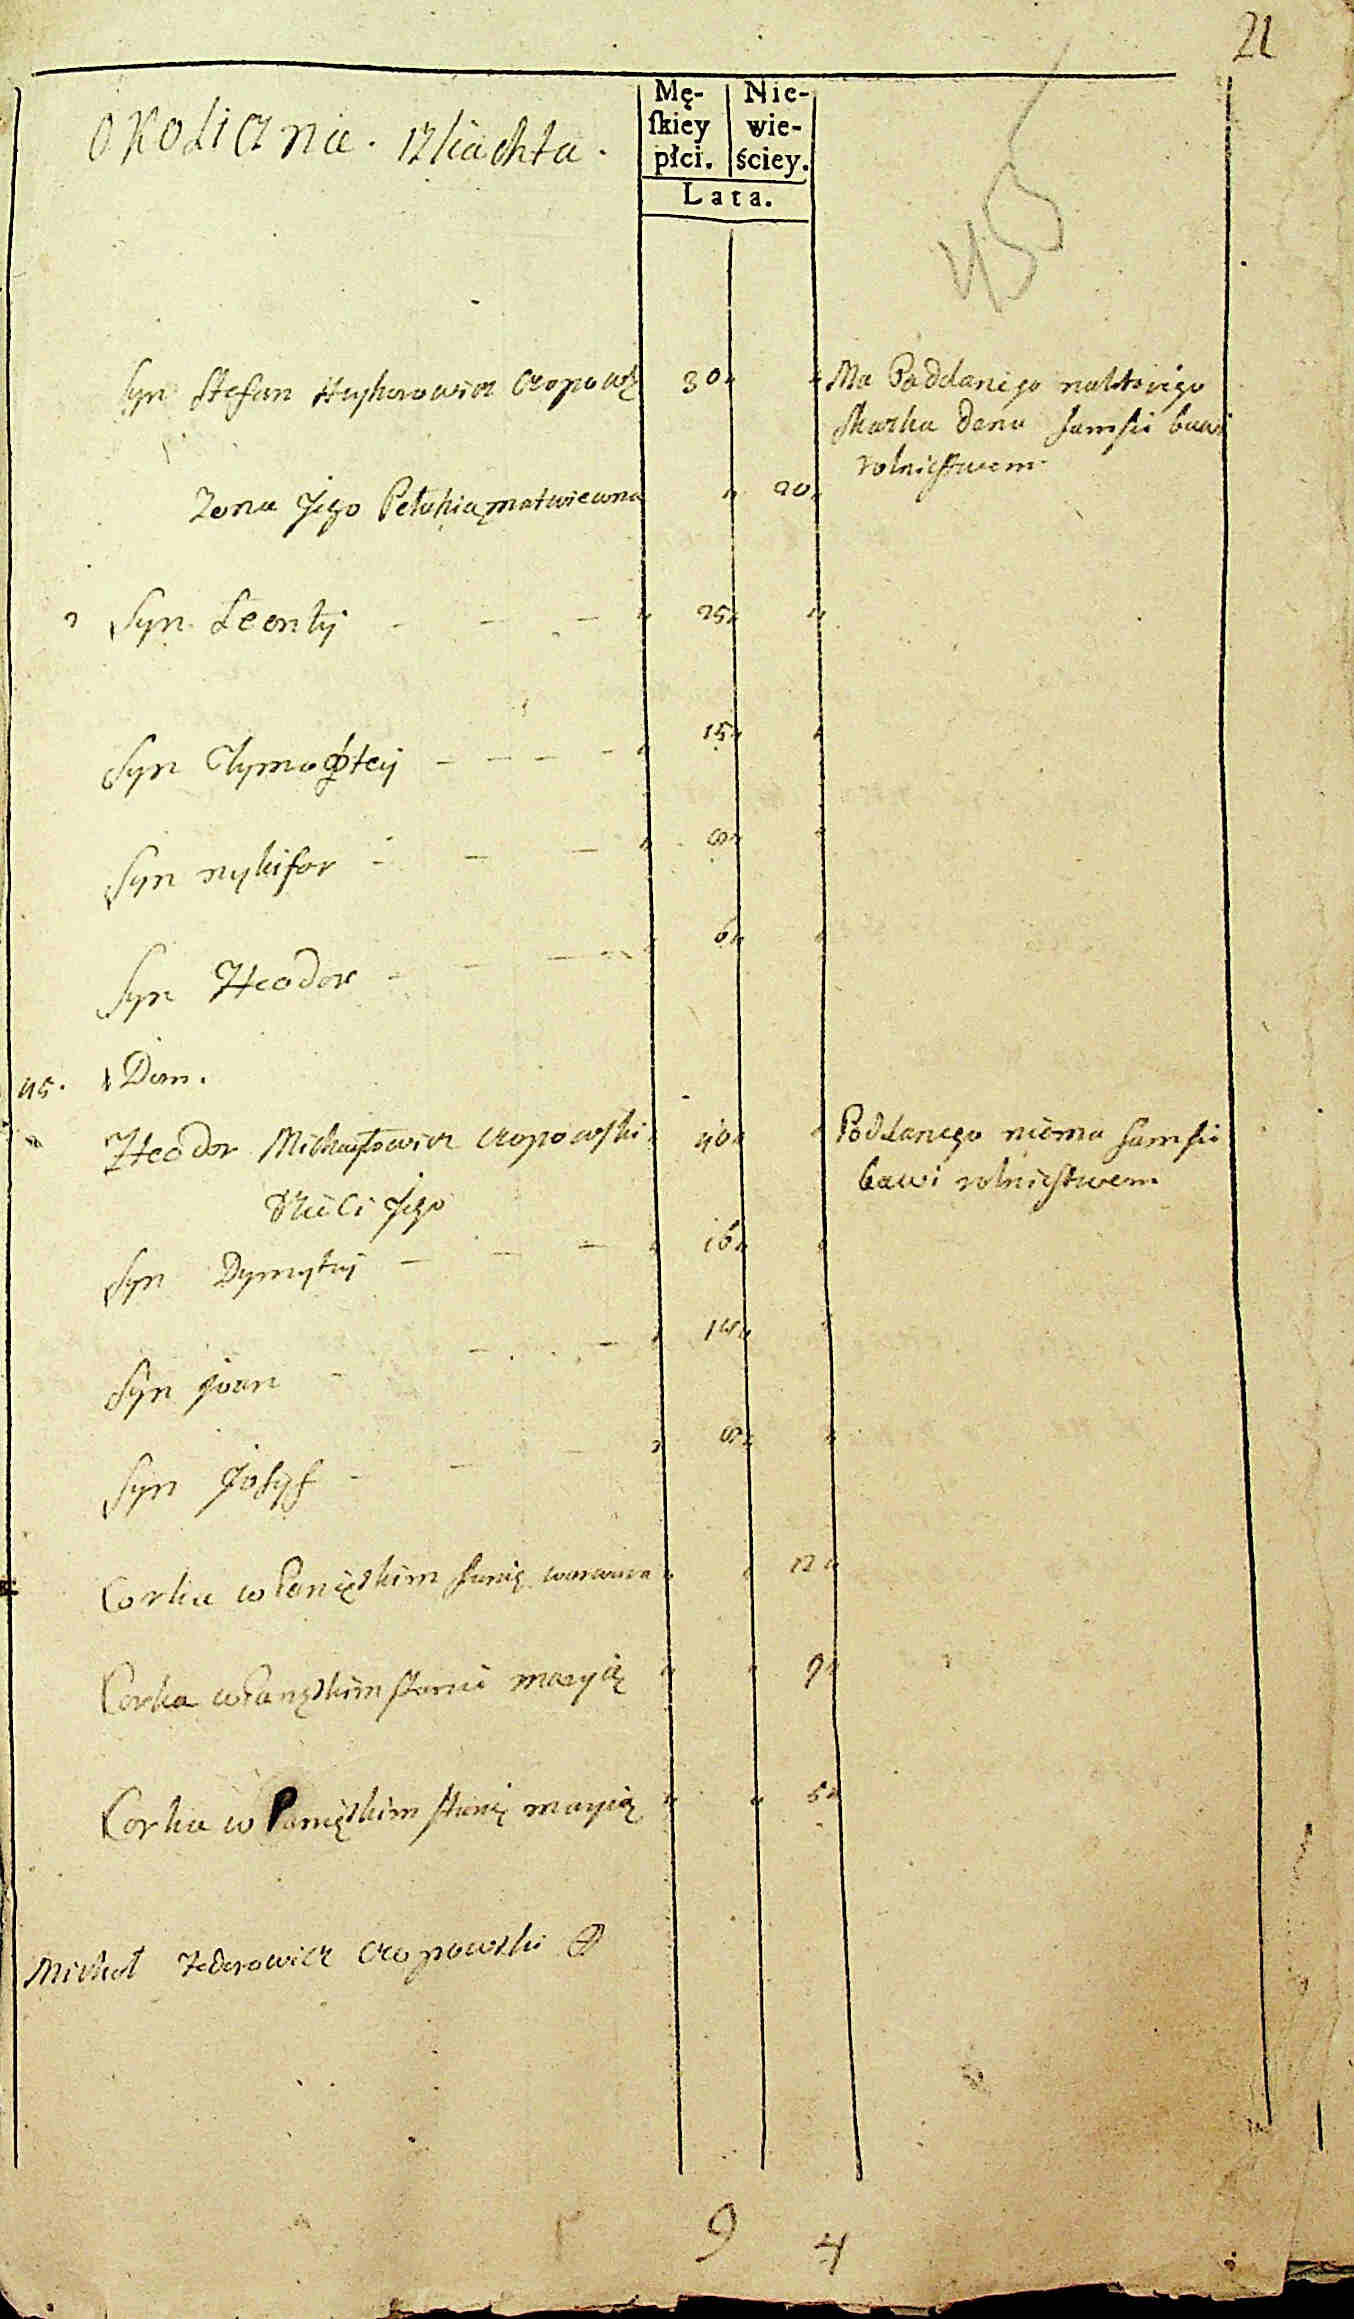 21
Okoliczna . Szliachta .
Mę-
skiey
płci.
Nie-
wie-
ściey.
Lata.
45
Syn Stefan Hryhorowicz Czopows 30 „ „ Ma Poddanego naktorego
skarbu dano samsie bawi
rolnictwem
Zona Jego Pelahia matwiewna „ 20 „
2 Syn Leontij – – – „ 25 „ „
Syn Tymoftey – – – – „ 15 „ „
Syn nykifor – – – „ 8 „ „
Syn Heodor – – – „ 6 „ „
45. 1 Dom.
„ Heodor Michayłowicz Czopowski „ 40 „ „ Poddanego niema samsie
bawi rolnictwem
Dzieci Jego
Syn Dymytry – – – „ 16 „ „
Syn joan – – – „ 14 „ „
Syn Josyf – – – „ 8 „ „
Corka w Panięskim stanię warwara „ „ 12 „
Corka w Panęskim stanie maryią „ „ 9 „
Corka w Panięskim stanię maryią „ „ 5 „
Michał Federowicz Czopowski
9 4